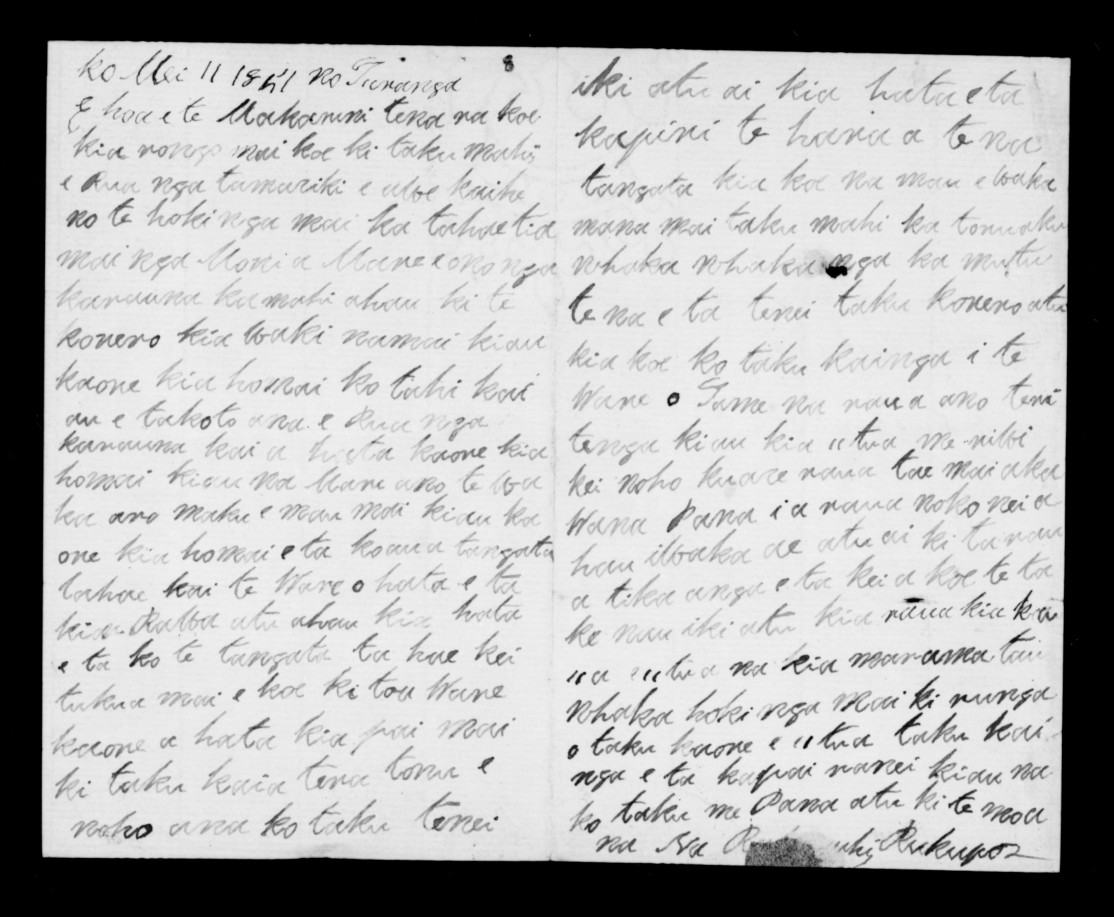 8
ko Mei 11 1851 no Turanga
E hoa e te Makarini tena ra koe
kia rongo mai koe ki taku mahi
e Rua nga tamariki e kaihe
no te hokinga mai ka tahaetia
mai nga Moni a Mare e ono nga
karauna ka mahi ahau ki te
korero kia waki na mai kiau
kaone kia homai ko tahi kai
au e takoto ana e Rua nga
karauna kai a hata kaone kia
homai kiau na Mare ano te wa
ka aro maku e mau mai kiau ka
one kia homai e ta ko aua tangata
tahae kai te Ware o hata e ta
kia Rawa atu ahau kia hata
e ta ko te tangata ta hae kei
tukua mai e koe ki toa Ware
kaone a hata kia pai mai
ki taku kaia tena tonu e
noho ana ko taku tenei
iki atu ai kia hata e ta
kapiri te haria a te na
tangata kia koe na mau e waka
mana mai taku mahi ka tonu aku
whaka whaka nga ka mutu
te na e ta tenei taku korero atu
kia koe ko taku kainga i te
Ware o Tame na raua ano teni
tenga kiau kia "tua me riwi
kei noho kuare raua tae mai aka
Wana Pana i a raua noko nei a
hau iwaka ae atu ai ki ta rau
a tika anga e ta kei a koe te ta
ke nau iki atu kia raua kia ka
"a "tua na kia marama tau
whaka hokinga mai ki runga
o taku kaone e "tua taku kai
nga e ta kapai ranei kiau na
ko taku me Pana atu ki te moa
na Na Rukupo